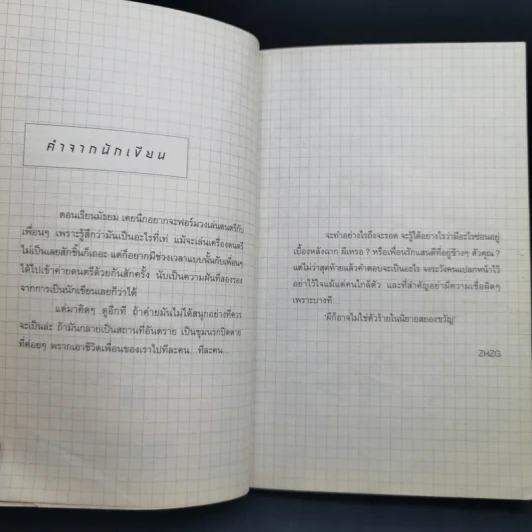 คำจากนักเขียน
ตอนเรียนมัธยม เคยนึกอยากจะฟอร์มวงเล่นดนตรีกับ
เพื่อนๆ เพราะรู้สึกว่ามันเป็นอะไรที่เท่ แม้จะเล่นเครื่องดนตรี
ไม่เป็นเลยสักชิ้นก็เถอะ แต่ก็อยากมีช่วงเวลาแบบนั้นกับเพื่อนๆ
ได้ไปเข้าค่ายดนตรีด้วยกันสักครั้ง นับเป็นความฝันที่สองรอง
จากการเป็นนักเขียนเลยก็ว่าได้
แต่มาคิดๆ ดูอีกที ถ้าค่ายมันไม่ได้สนุกอย่างที่ควร
จะเป็นล่ะ ถ้ามันกลายเป็นสถานที่อันตราย เป็นขุมนรกปิดตาย
ที่ค่อยๆ พรากเอาชีวิตเพื่อนของเราไปทีละคน...ทีละคน...
จะทำอย่างไรถึงจะรอด จะรู้ได้อย่างไรว่ามีอะไรซ่อนอยู่
เบื้องหลังฉาก ผีเหรอ? หรือเพื่อนรักแสนดีที่อยู่ข้างๆ ตัวคุณ?
แต่ไม่ว่าสุดท้ายแล้วคำตอบจะเป็นอะไร จงระวังคนแปลกหน้าไว้
อย่าไว้ใจแม้แต่คนใกล้ตัว และที่สำคัญอย่ามีความเชื่อผิดๆ
เพราะบางที...
'ผีก็อาจไม่ใช่ตัวร้ายในนิยายสยองขวัญ'
ZHZG